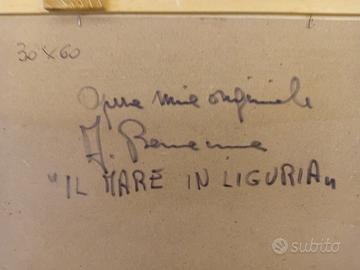 30x60
Opera mia originale
"IL MARE IN LIGURIA"
subito